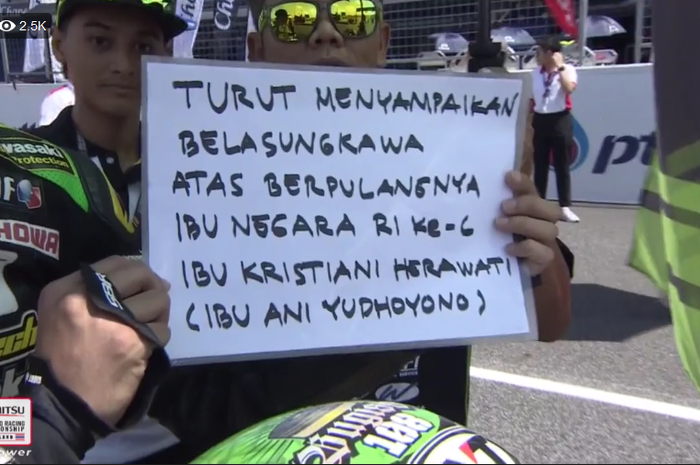 2.5K
TURUT MENYAMPAIKAN
BELASUNGKAWA
ATAS BERPULANGNYA
IBU NEGARA RI KE-6
IBU KRISTIANI HERAWATI
(IBU ANI YUDHOYONO)
HOWA
108